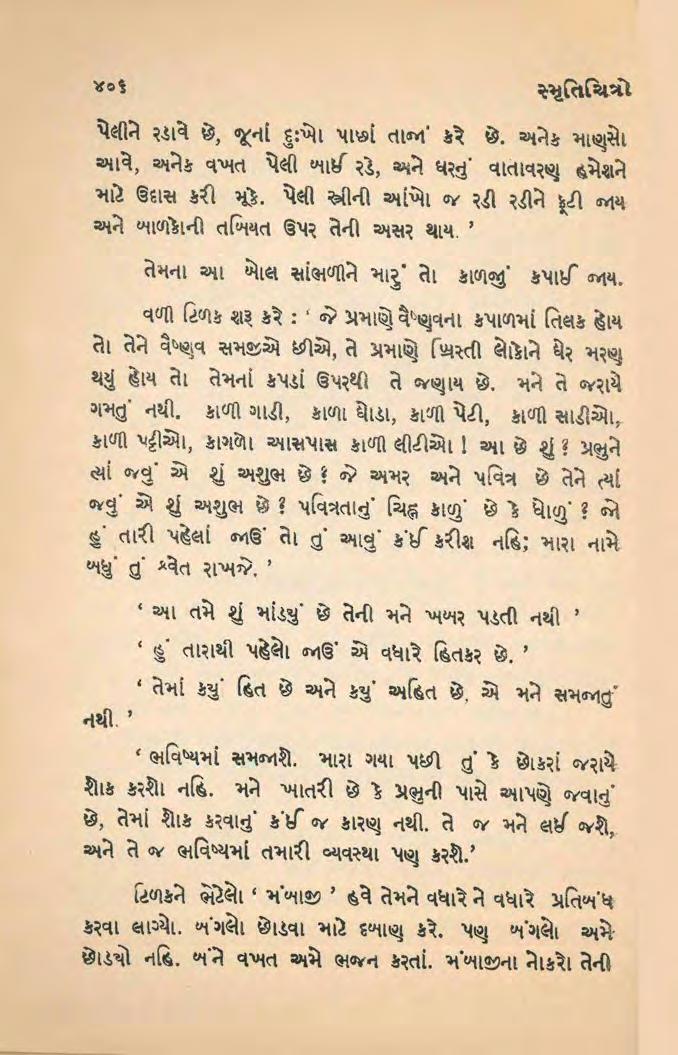 ૪૦૬ સ્મૃતિચિત્રો
પેલીને રડાવે છે, જૂનાં દુઃખો પાછાં તાજાં કરે છે. અનેક માણસો
આવે, અનેક વખત પેલી બાઈ રડે, અને ઘરનું વાતાવરણ હમેશને
માટે ઉદાસ કરી મૂકે. પેલી સ્ત્રીની આંખો જ રડી રડીને ફૂટી જાય
અને બાળકોની તબિયત ઉપર તેની અસર થાય. ’
તેમના આ બોલ સાંભળીને મારું તો કાળજું કપાઈ જાય.
વળી ટિળક શરૂ કરે : ‘ જે પ્રમાણે વૈષ્ણવના કપાળમાં તિલક હોય
તો તેને વૈષ્ણવ સમજીએ છીએ, તે પ્રમાણે ખ્રિસ્તી લોકોને ઘેર મરણ
થયું હોય તો તેમનાં કપડાં ઉપરથી તે જણાય છે. મને તે જરાયે
ગમતું નથી. કાળી ગાડી, કાળા ઘોડા, કાળી પેટી, કાળી સાડીઓ,
કાળી પટ્ટીઓ, કાગળો આસપાસ કાળી લીટીઓ ! આ છે શું ? પ્રભુને
ત્યાં જવું એ શું અશુભ છે ? જે અમર અને પવિત્ર છે તેને ત્યાં
જવું એ શું અશુભ છે ? પવિત્રતાનું ચિહ્ન કાળું છે કે ધોળું ? જો
હું તારી પહેલાં જાઉં તો તું આવું કંઈ કરીશ નહિ; મારા નામે
બધું તું શ્વેત રાખજે. ’
‘ આ તમે શું માંડ્યું છે તેની મને ખબર પડતી નથી ’
‘ હું તારાથી પહેલો જાઉં એ વધારે હિતકર છે. ’
‘ તેમાં કયું હિત છે અને કયું અહિત છે, એ મને સમજાતું
નથી. ’
‘ ભવિષ્યમાં સમજાશે. મારા ગયા પછી તું કે છોકરાં જરાયે
શોક કરશો નહિ. મને ખાતરી છે કે પ્રભુની પાસે આપણે જવાનું
છે, તેમાં શોક કરવાનું કંઈ જ કારણ નથી. તે જ મને લઈ જશે,
અને તે જ ભવિષ્યમાં તમારી વ્યવસ્થા પણ કરશે.’
ટિળકને ભેટેલો ‘ મંબાજી ’ હવે તેમને વધારે ને વધારે પ્રતિબંધ
કરવા લાગ્યો. બંગલો છોડવા માટે દબાણ કરે. પણ બંગલો અમે
છોડ્યો નહિ. બંને વખત અમે ભજન કરતાં. મંબાજીના નોકરો તેની